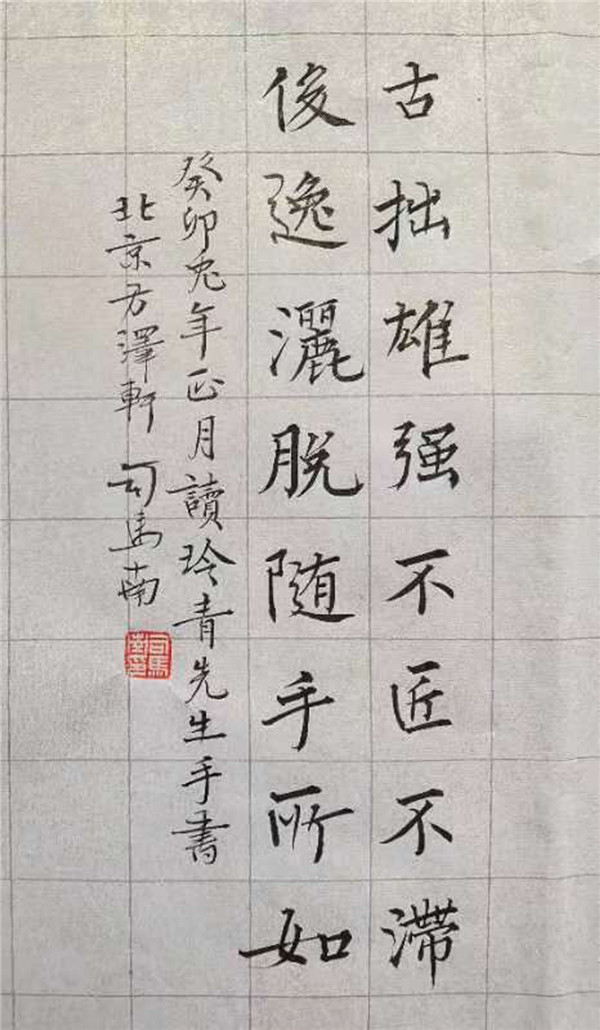 古拙雄强不匠不滯
俊逸灑脱随手所如
癸卯兔年正月讀玲青先生手書
北京方澤軒 司馬南
司馬南印